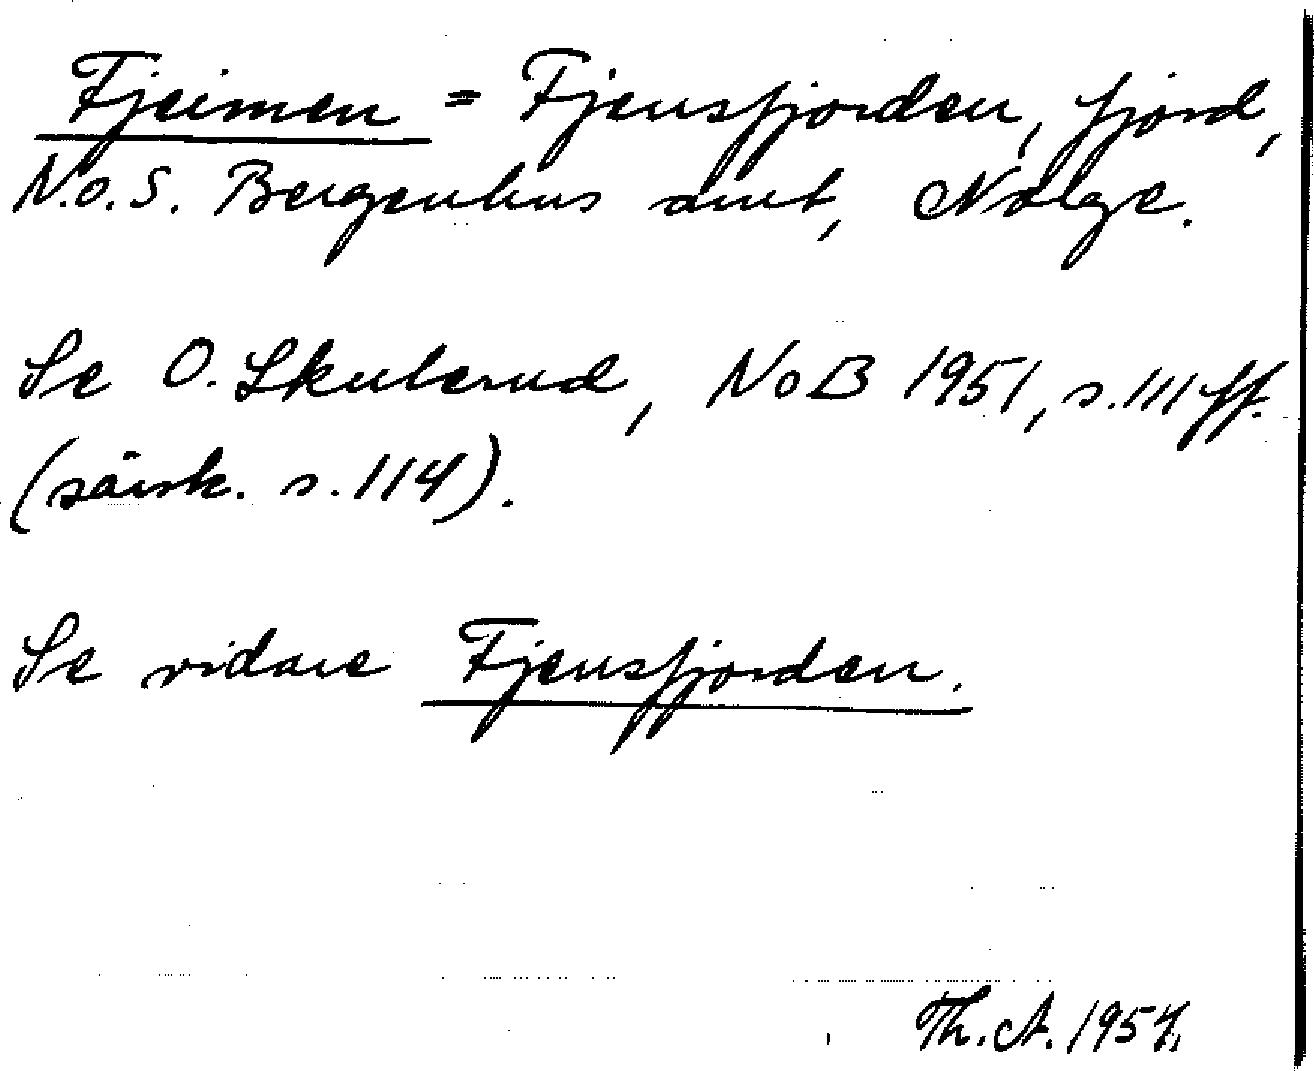 Fjeimen = Fjensfjorden, fjord,
N.o.S. Bergenhus amt, Norge.
Se O. Skulerud, NoB 1951, s. 111 ff.
(särsk. s. 114).
Se vidare Fjensfjorden.
Th. A. 1954.